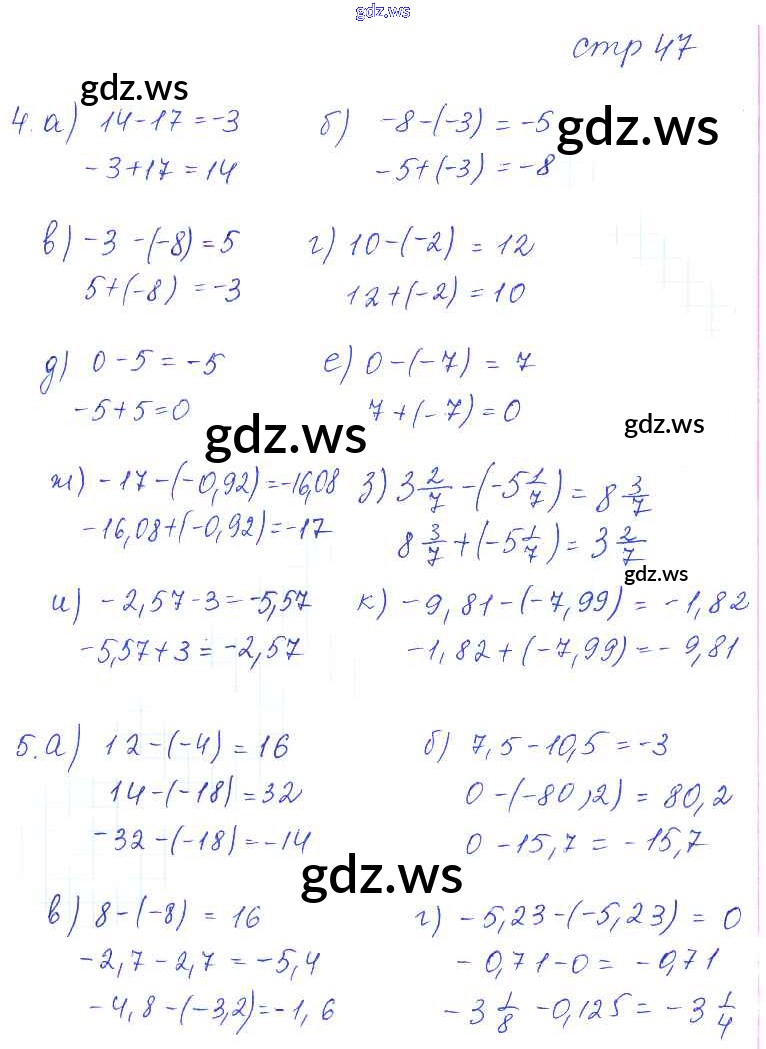 gdz.ws
стр 47
gdz.ws
4. а) 14-17=-3 б) -8-(-3)=-5
gdz.ws
-3+17=14 -5+(-3)=-8
в) -3-(-8)=5 г) 10-(-2)=12
5+(-8)=-3 12+(-2)=10
д) 0-5=-5 е) 0-(-7)=7
-5+5=0 7+(-7)=0
gdz.ws gdz.ws
ж) -17-(-0,92)=-16,08 з) 3 2/7-(-5 1/7)=8 3/7
-16,08+(-0,92)=-17 8 3/7+(-5 1/7)=3 2/7
gdz.ws
и) -2,57-3=-5,57 к) -9,81-(-7,99)=-1,82
-5,57+3=-2,57 -1,82+(-7,99)=-9,81
5. а) 12-(-4)=16 б) 7,5-10,5=-3
14-(-18)=32 0-(-80,2)=80,2
-32-(-18)=-14 0-15,7=-15,7
gdz.ws
в) 8-(-8)=16 г) -5,23-(-5,23)=0
-2,7-2,7=-5,4 -0,71-0=-0,71
-4,8-(-3,2)=-1,6 -3 1/8-0,125=-3 1/4